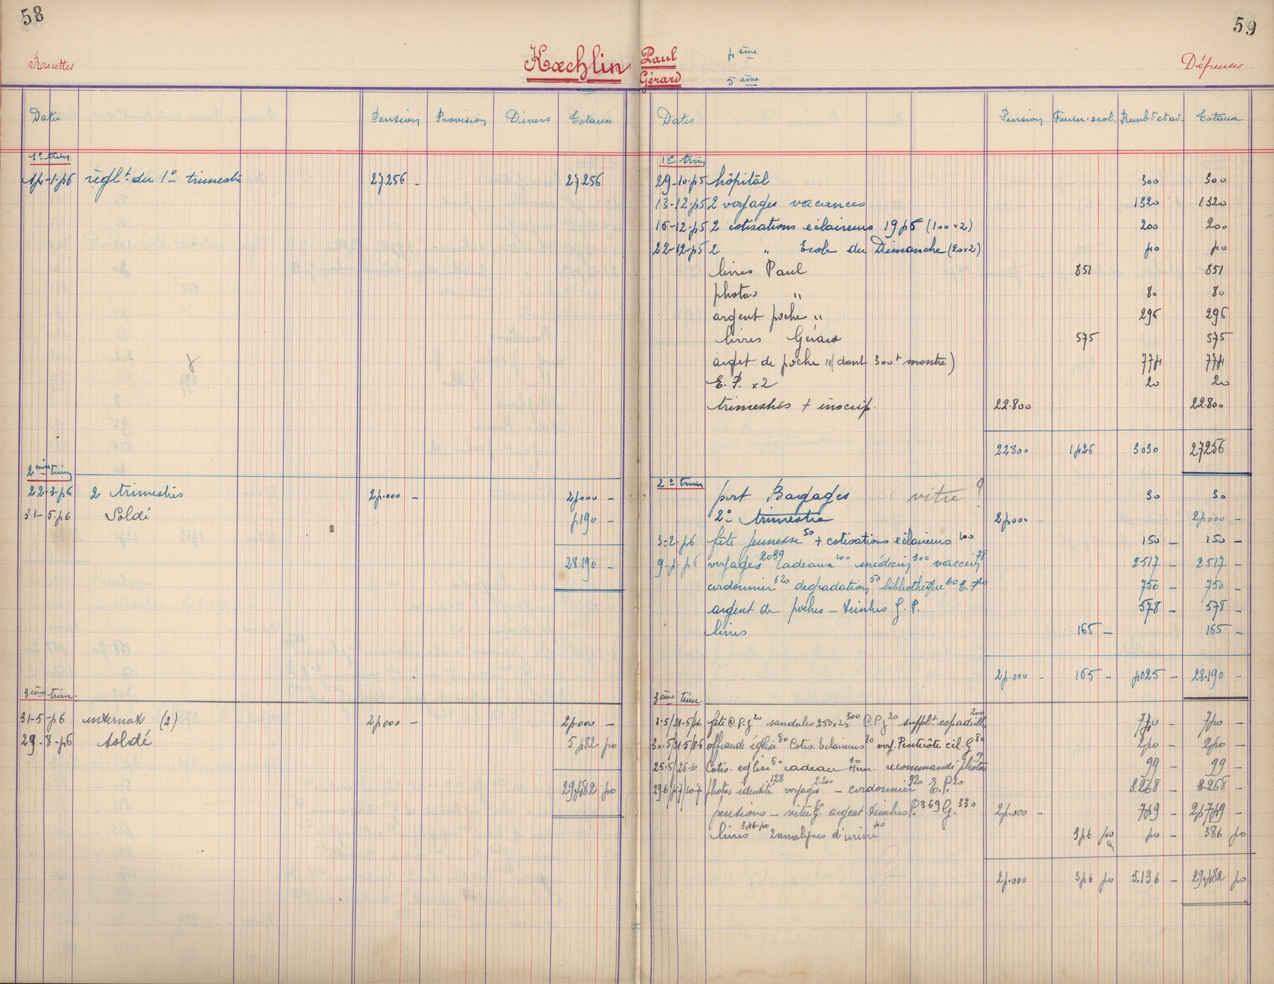 58
Recettes
Kœchlin
Dates Pension Provision Divers Totaux
1er trim
règlt. du 1er trimestre 27256 - 27256
2ème trim
22-3-46 2 trimestres 24.000 - 24000 -
31-5-46 Soldé 4190 -
28.190 -
3ème trim.
31-5-46 internats (2) 24000 - 24.000 -
29-8-46 Soldé 5482 40
29482 40
59
Paul 4ème
Gérard 5ème
Dépenses
Dates Pension Fourn. scol. Remb. et av. Totaux
1er trim
29-10-45 hôpital 300 300
13-12-45 2 voyages vacances 1320 1320
15-12-45 2 cotisations éclaireurs 1945 (100×2) 200 200
22-12-45 2 " Ecole du Dimanche (20×2) 40 40
livres Paul 851 851
photos " 80 80
argent poche " 295 295
livres Gérard 575 575
argt de poche " (dont 300f montre) 774 774
E.P. ×2 20 20
trimestres + inscrip. 22.800 22.800
22800 1426 3030 27256
2e trim
port Bagages vitre ? 30 30
2e trimestre 24000 - 24000 -
3-2-46 fête jeunesse 50 + cotisations éclaireurs 100 150 - 150 -
9-4-46 voyages 2039 cadeaux 100 médecin 300 vaccin 78 2517 - 2517 -
cordonnier 620 dégradation 50 bibliothèque 60 750 - 750 -
argent de poches - timbres G. P. 578 - 578 -
livres 165 - 165 -
24.000 - 165 - 4025 - 28.190 -
3ème trim
sandales supplt. espadrilles 740 - 740 -
offrande église Cotis. Eclaireurs voy. Pentecôte 240 - 240 -
Cotis. église cadeau recommandé photos 99 - 99 -
photos identité 128 voyages 2200 - cordonnier 920 E.P. 20 3268 - 3.268 -
pensions - vitre G. argent timbres P. 369 G. 330 24.000 - 749 - 24749 -
livres 346.40 2 analyses d'urine 40 346 40 40 - 386 40
24.000 - 346 40 5.136 - 29.482 40